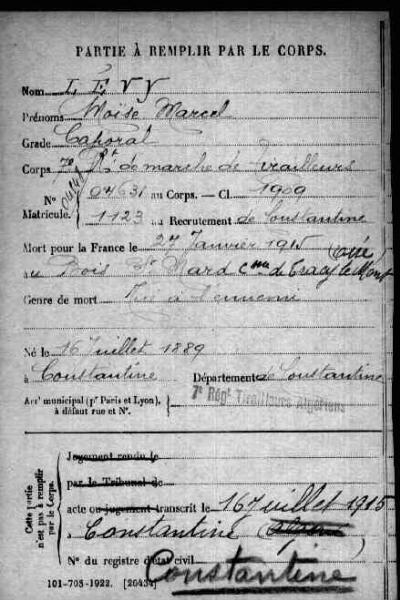 PARTIE À REMPLIR PAR LE CORPS.
Nom LEVY
Prénoms Moïse Marcel
Grade Caporal
Corps 7e Rgt de marche de Tirailleurs
N° 04631 au Corps. — Cl. 1909
Matricule. 1123 au Recrutement de Constantine
Mort pour la France le 27 Janvier 1915
au Bois St Mard Cne de Tracy le Mont (Oise)
Genre de mort Tué à l'ennemi
Né le 16 Juillet 1889
à Constantine Département de Constantine
Arr' municipal (p' Paris et Lyon),
à défaut rue et N°.
7e Régt Tirailleurs Algériens
Cette partie
n'est pas à remplir
par le Corps.
Jugement rendu le
par le Tribunal de
acte ou jugement transcrit le 16 Juillet 1915
à Constantine
N° du registre d'état civil
Constantine
101-708-1922. [20434]